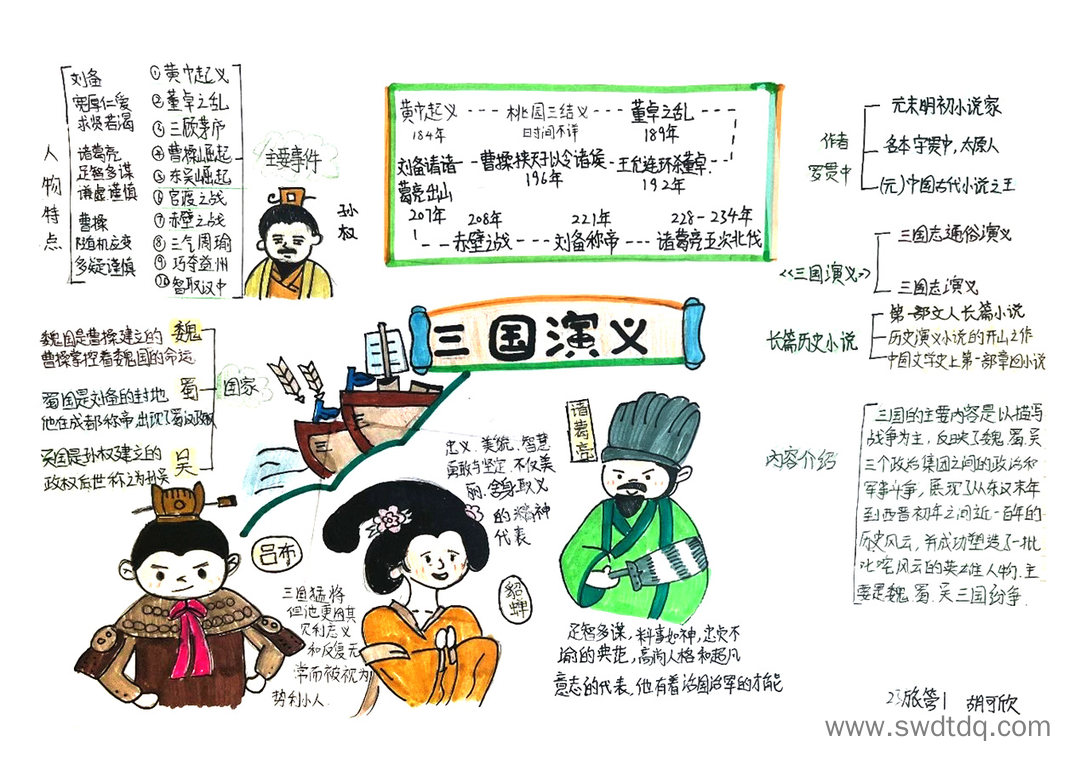 人物特点
刘备
宽厚仁爱
求贤若渴
诸葛亮
足智多谋
谦虚谨慎
曹操
随机应变
多疑谨慎
①黄巾起义
②董卓之乱
③三顾茅庐
④曹操崛起
⑤东吴崛起
⑥官渡之战
⑦赤壁之战
⑧三气周瑜
⑨巧夺益州
⑩智取汉中
主要事件
孙权
黄巾起义
184年
桃园三结义
日时间不详
董卓之乱
189年
刘备请诸
葛亮出山
207年
曹操挟天子以令诸侯
196年
王允连环杀董卓
192年
208年
赤壁之战
221年
刘备称帝
228-234年
诸葛亮五次北伐
作者
罗贯中
元末明初小说家
名本字贯中,太原人
(元)中国古代小说之王
《三国演义》
三国志通俗演义
三国志演义
长篇历史小说
第一部文人长篇小说
历史演义小说的开山之作
中国文学史上第一部章回小说
三国演义
魏国是曹操建立的
曹操掌控着魏国的命运
魏
蜀国是刘备的封地
他在成都称帝,出现了蜀汉政权
蜀
吴国是孙权建立的
政权后世称为孙吴
吴
国家
三
内容介绍
三国的主要内容是以描写
战争为主,反映了魏、蜀、吴
三个政治集团之间的政治和
军事斗争,展现了从东汉末年
到西晋初年之间近一百年的
历史风云,并成功塑造了一批
叱咤风云的英雄人物.主
要是魏、蜀、吴三国纷争.
吕布
三国猛将
但他更因其
见利忘义
和反复无
常而被视为
势利小人.
忠义、美貌、智慧
勇敢与坚定,不仅美
丽,舍身取义
的精神
代表
貂蝉
诸葛亮
足智多谋,料事如神,忠贞不
渝的典范,高尚人格和超凡
意志的代表.他有着治国治军的才能
23旅管1 胡可欣
www.swdtdq.com